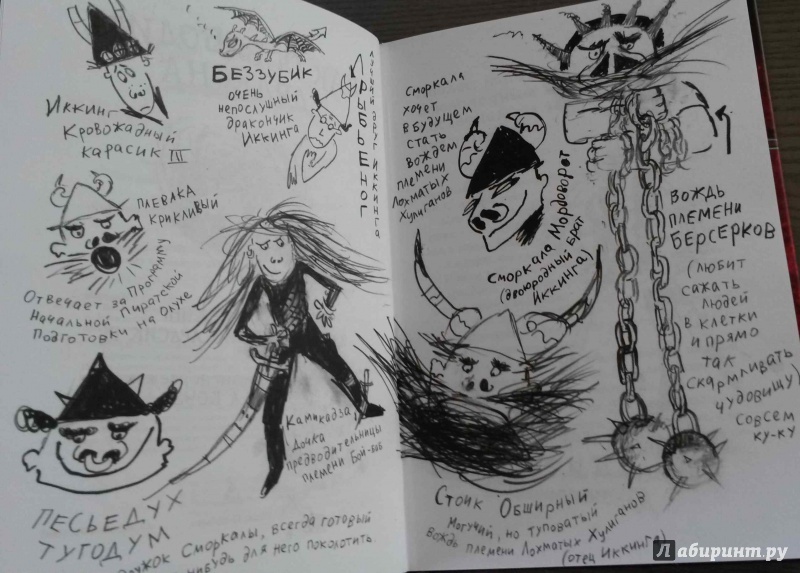 Иккинг
Кровожадный
карасик III
БЕЗЗУБИК
очень
непослушный
дракончик
Иккинга
РЫБЬЕНОГ
лучший друг Иккинга
Плевака
Крикливый
Отвечает за Программу
Начальной Пиратской
Подготовки на Олухе
ПЕСЬЕДУХ
ТУГОДУМ
дружок Сморкалы, всегда готовый
нибудь для него поколотить.
Камикадза,
дочка
предводительницы
племени Бой-баб
Сморкала
хочет
в будущем
стать
вождем
племени
Лохматых
Хулиганов
Сморкала Мордоворот
(двоюродный брат
Иккинга)
Вождь
племени
БЕРСЕРКОВ
(любит
сажать
людей
в клетки
и прямо
так
скармливать
чудовищу)
совсем
ку-ку
Стоик Обширный
Могучий, но туповатый
вождь племени Лохматых Хулиганов
(отец Иккинга)
Лабиринт.ру